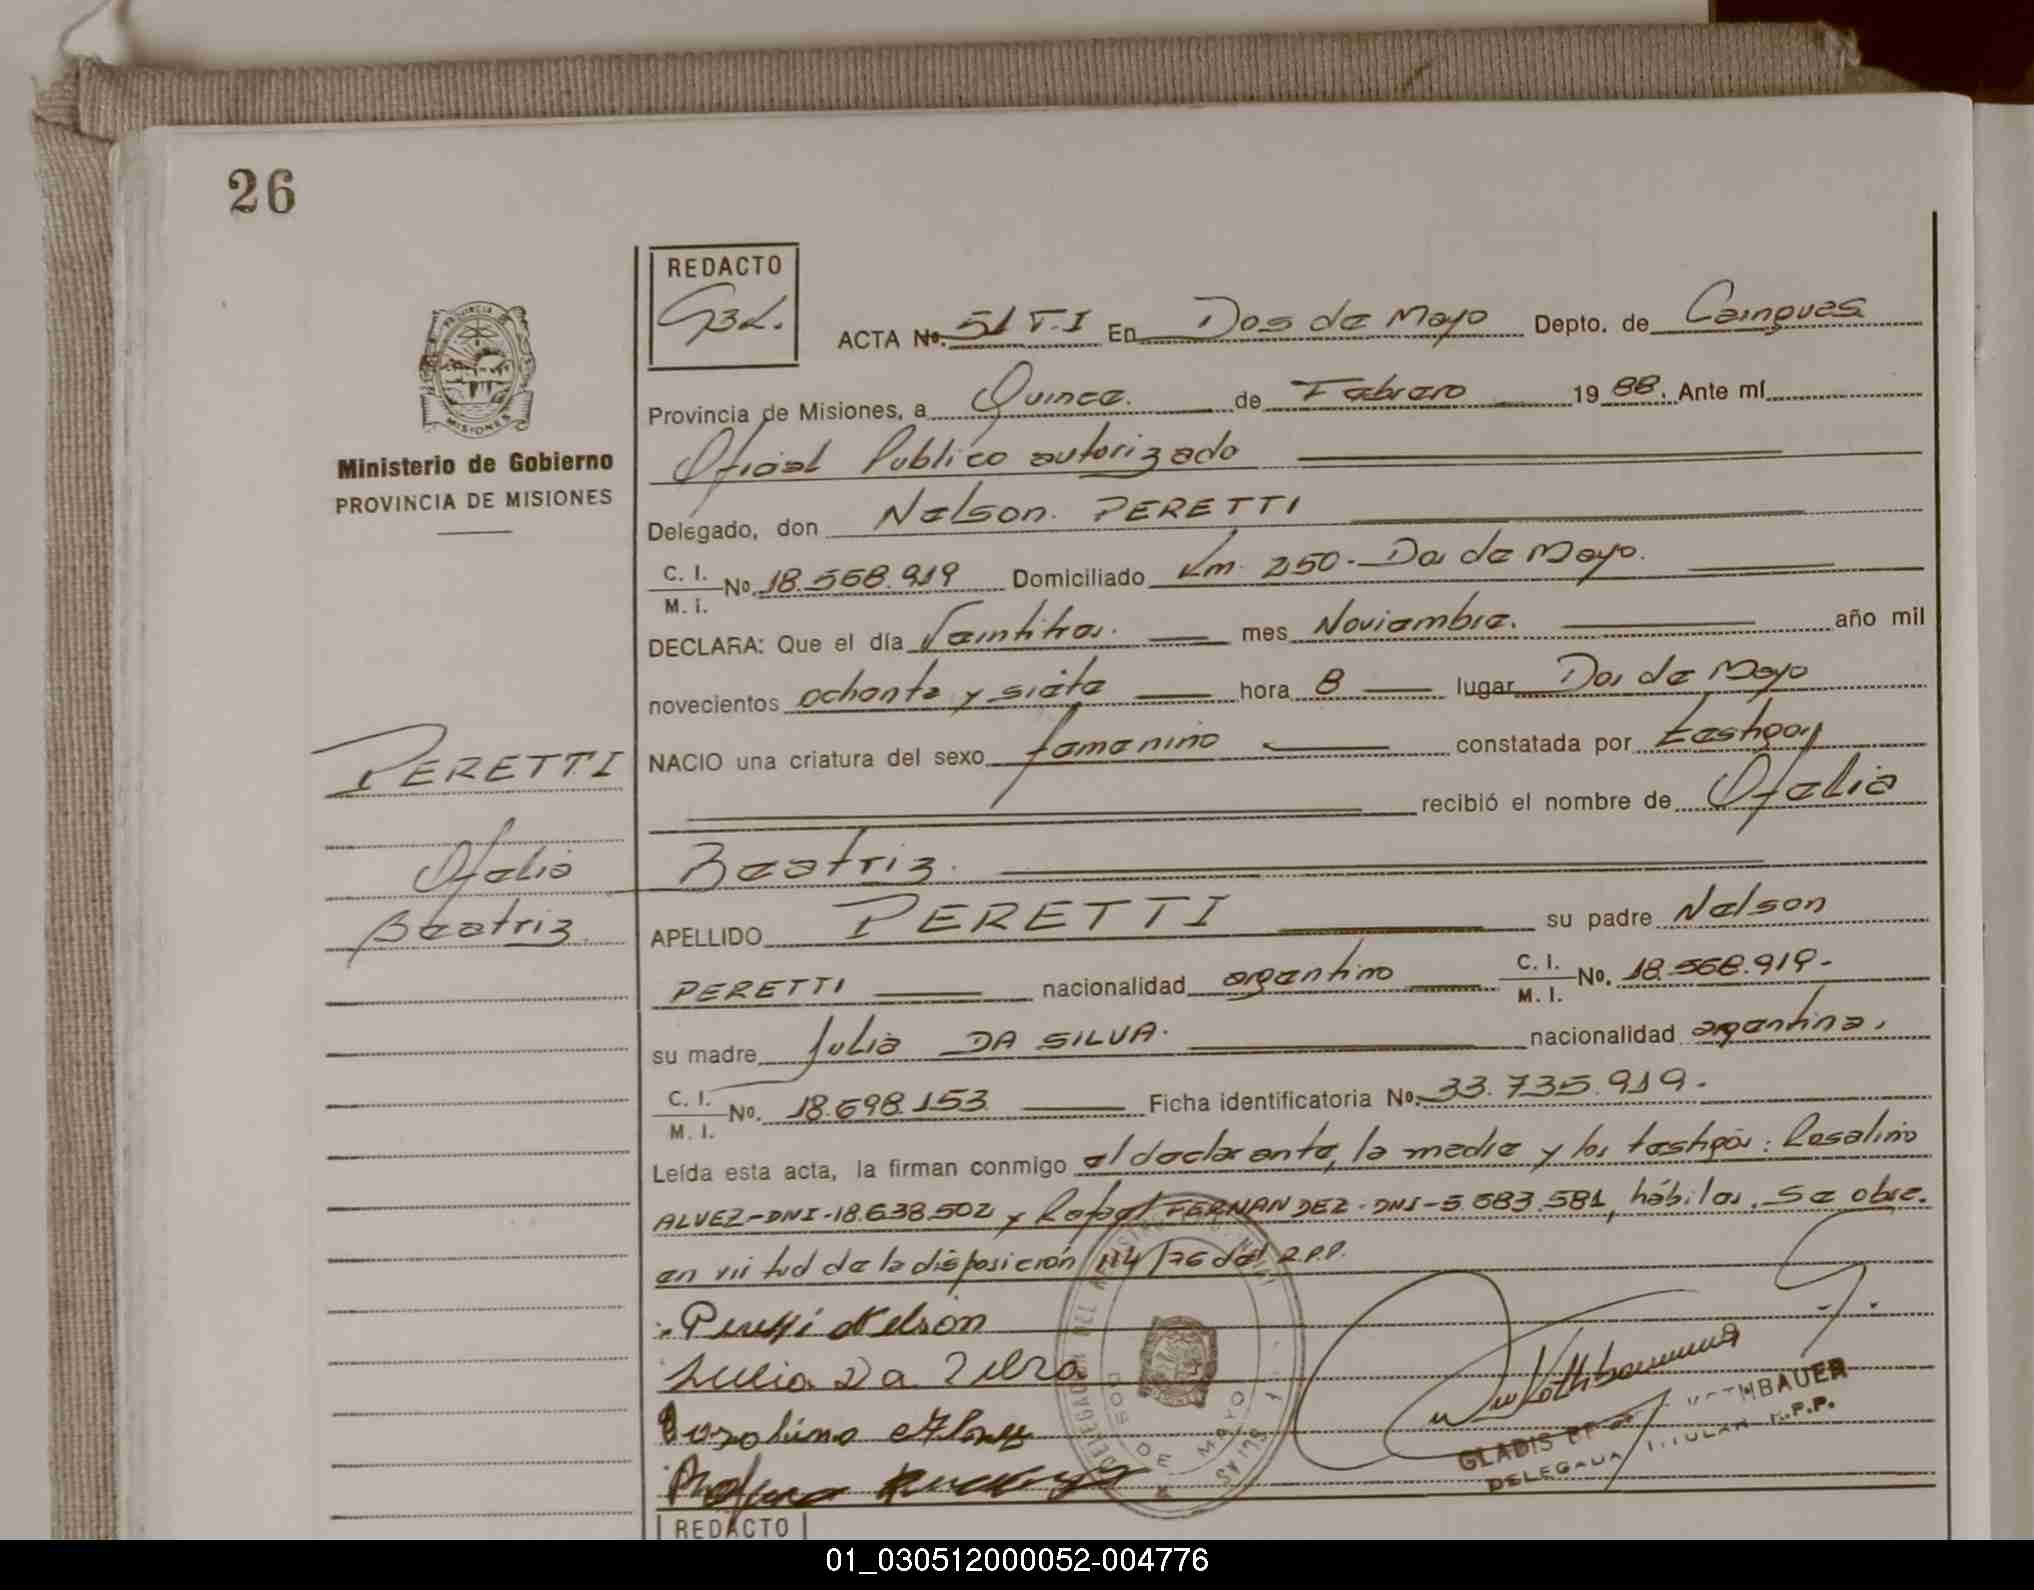 26
REDACTO
G3L.
ACTA No. 51 T.I En Dos de Mayo Depto. de Cainguas
Provincia de Misiones, a Quince. de Febrero 1988. Ante mí
Oficial Publico autorizado
Ministerio de Gobierno
PROVINCIA DE MISIONES
Delegado, don Nelson PERETTI
C. I.
M. I. No. 18.568.919 Domiciliado Km 250 - Dos de Mayo.
DECLARA: Que el día Veintitres. mes Noviembre. año mil
novecientos ochenta y siete hora 8 lugar Dos de Mayo
NACIO una criatura del sexo femenino constatada por testigos
recibió el nombre de Ofelia
PERETTI
Ofelia
Beatriz
Beatriz.
APELLIDO PERETTI su padre Nelson
PERETTI nacionalidad argentino C. I.
M. I. No. 18.568.919.-
su madre Julia DA SILVA. nacionalidad argentina.
C. I.
M. I. No. 18.698.153 Ficha identificatoria No. 33.735.919.
Leída esta acta, la firman conmigo el declarante, la madre y los testigos: Rosalino
ALVEZ-DNI-18.638.502 y Rafael FERNANDEZ-DNI-5.683.581, hábiles. Se obre.
en virtud de la disposición 114/76 del R.P.P.
Peretti Nelson
Julia Da Silva
DOS DE MAYO
GLADIS
DELEGADA TITULAR R.P.P.
REDACTO
01_030512000052-004776